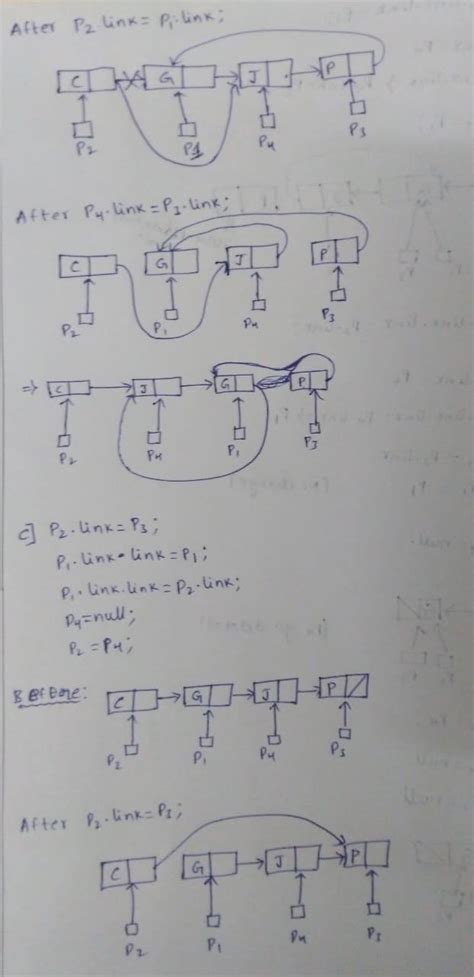 After P2.link = P1.link;
C G J P
P2 P1 P4 P3
After P4.link = P3.link;
C G J P
P2 P1 P4 P3
⇒ C J G P
P2 P4 P1 P3
C] P2.link = P3;
P1.link.link = P1;
P1.link.link = P2.link;
P4 = null;
P2 = P4;
Before:
C G J P
P2 P1 P4 P3
After P2.link = P3;
C G J P
P2 P1 P4 P3